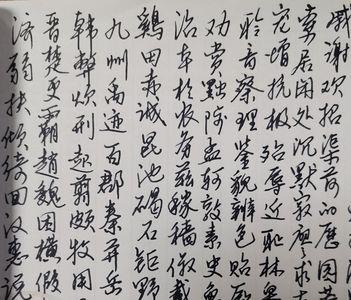 感谢欢招渠荷的歷园莽
索居闲处沉默寂寥求古
宠增抗极殆辱近耻林皋
聆音察理鉴貌辨色贻厥
劝赏黜陟孟轲敦素史鱼
治本於农务兹稼穑俶载
鷄田赤诚昆池碣石钜野
九州禹迹百郡秦并岳
韩弊烦刑起翦颇牧用
晋楚更霸趙魏困横假
济弱扶倾绮回汉惠说